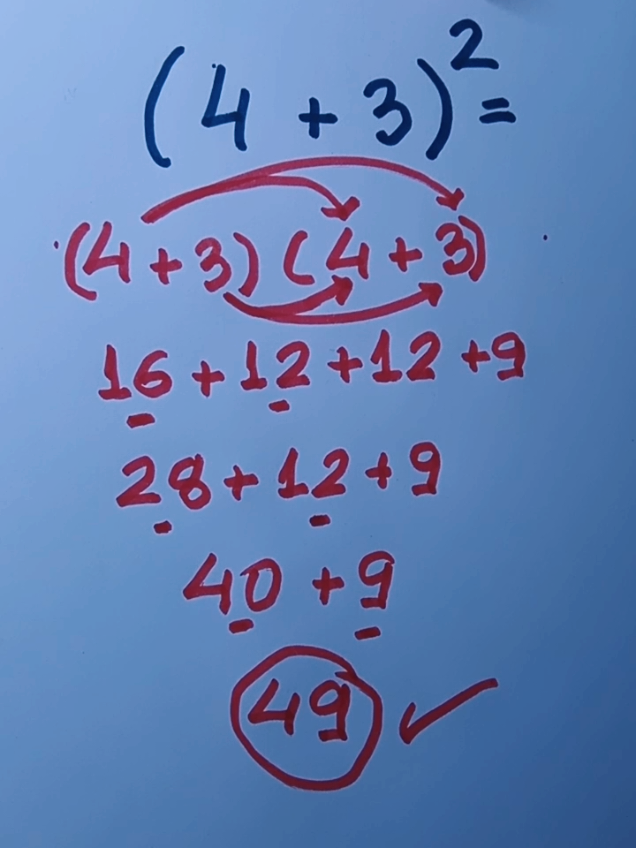 (4 + 3)² =
(4 + 3) (4 + 3)
16 + 12 + 12 + 9
28 + 12 + 9
40 + 9
49 ✓